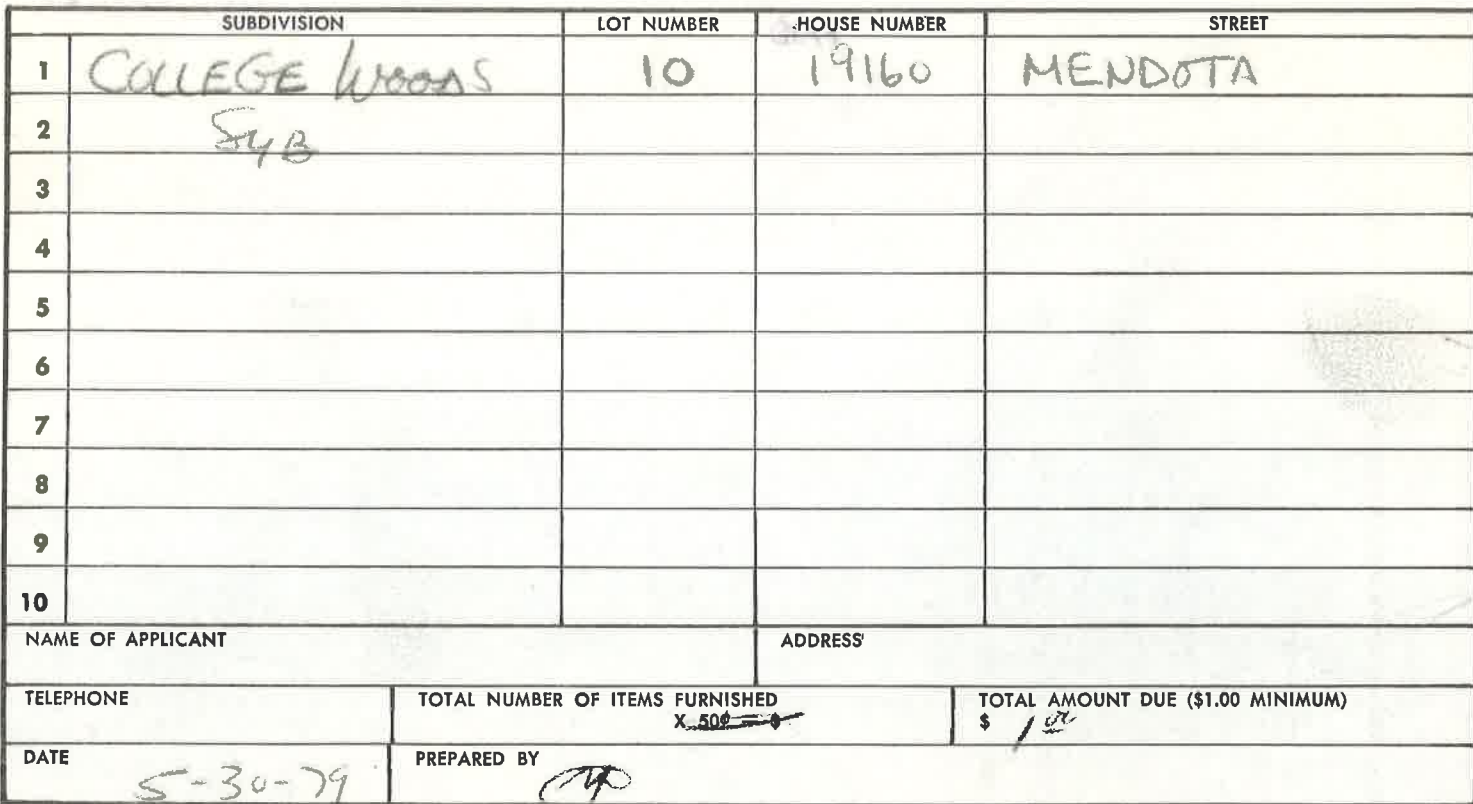 SUBDIVISION LOT NUMBER HOUSE NUMBER STREET
1 COLLEGE WOODS 10 19160 MENDOTA
2 SUB
3
4
5
6
7
8
9
10
NAME OF APPLICANT ADDRESS
TELEPHONE TOTAL NUMBER OF ITEMS FURNISHED TOTAL AMOUNT DUE ($1.00 MINIMUM)
X 50¢ = $ $ 1 00
DATE 5-30-79 PREPARED BY